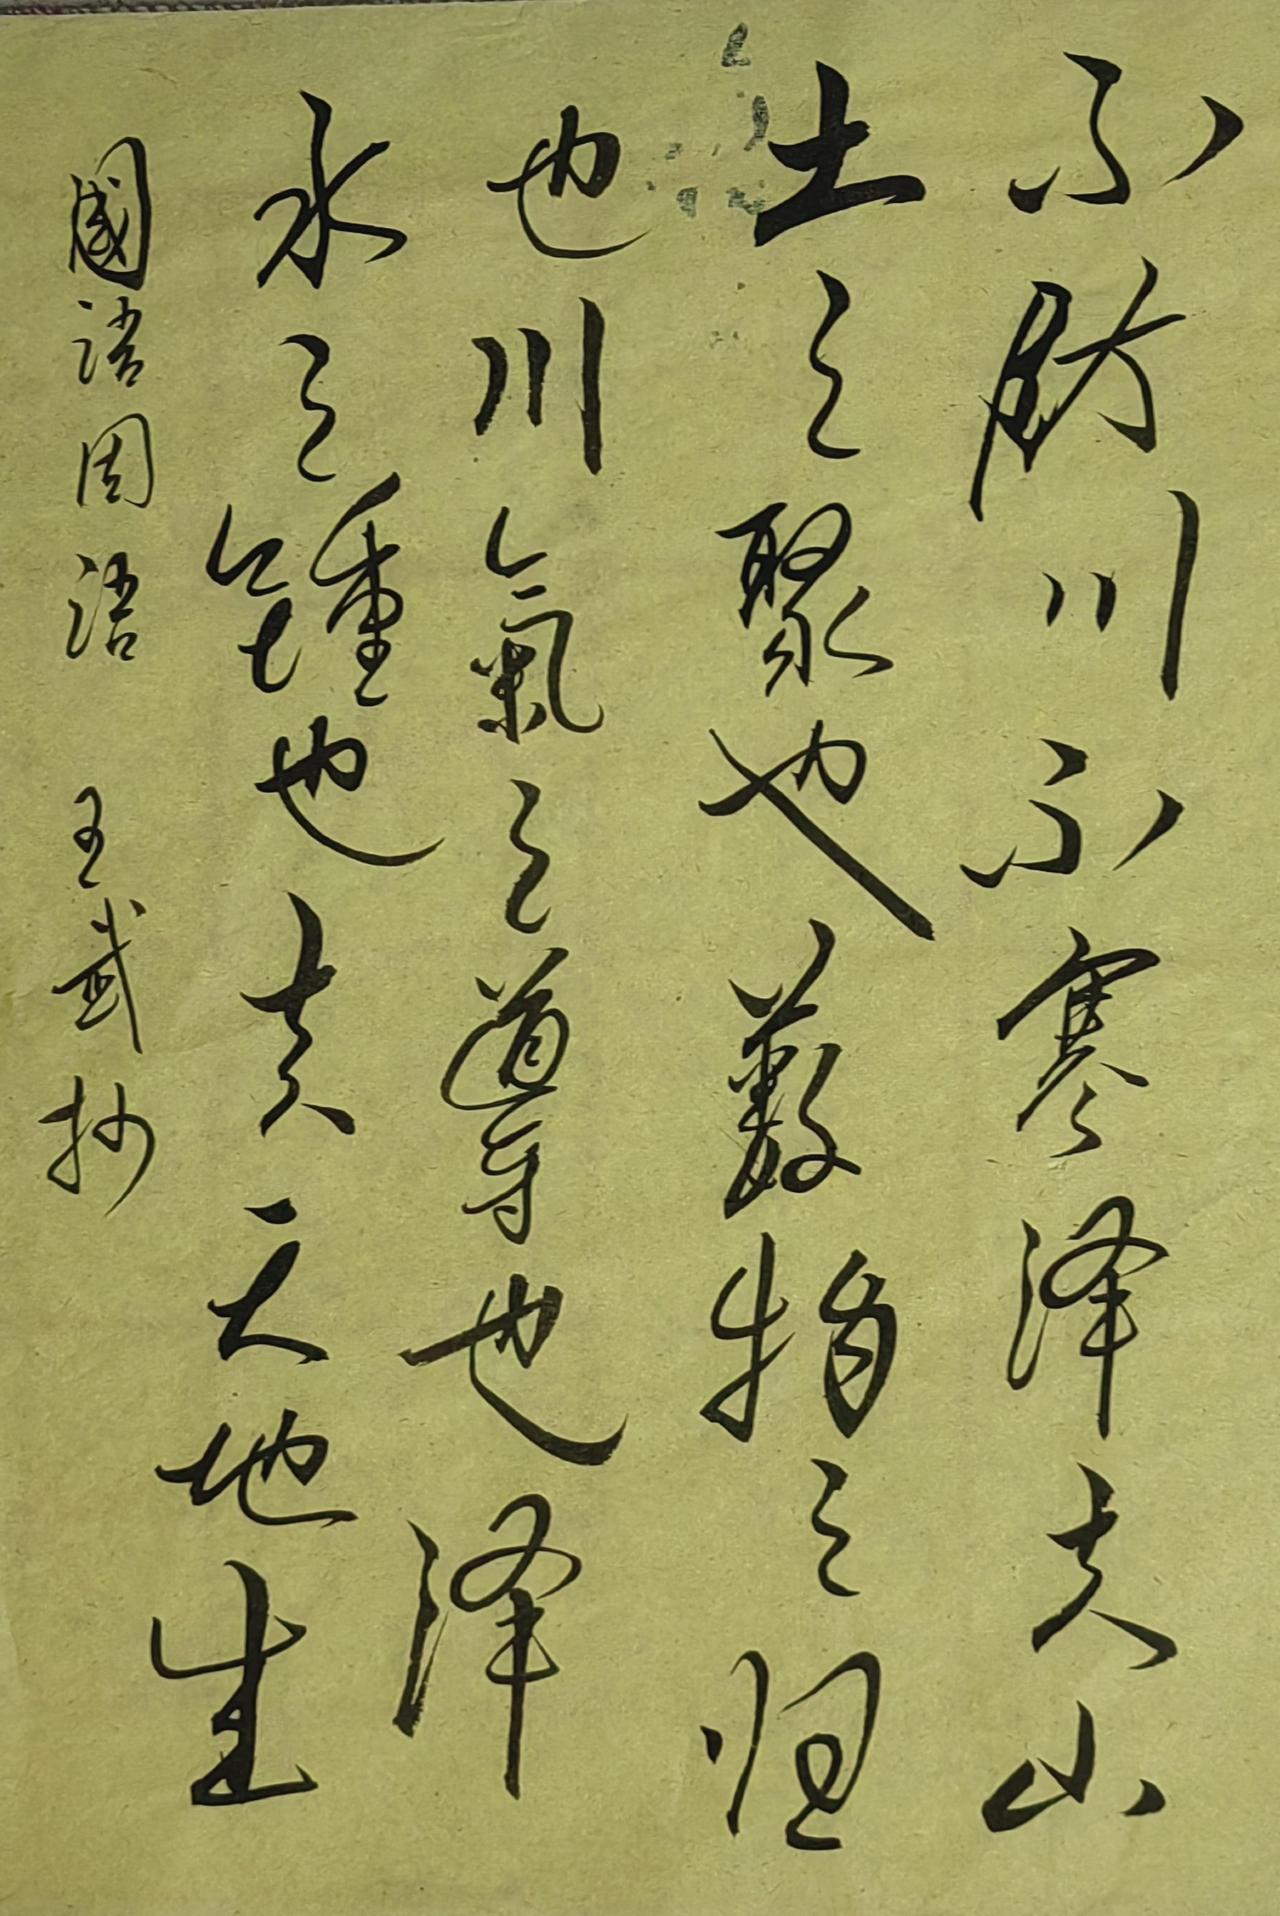 不防川不窦泽夫山
土之聚也薮物之归
也川氣之導也泽
水之鍾也夫天地
生
國語周語 王武抄